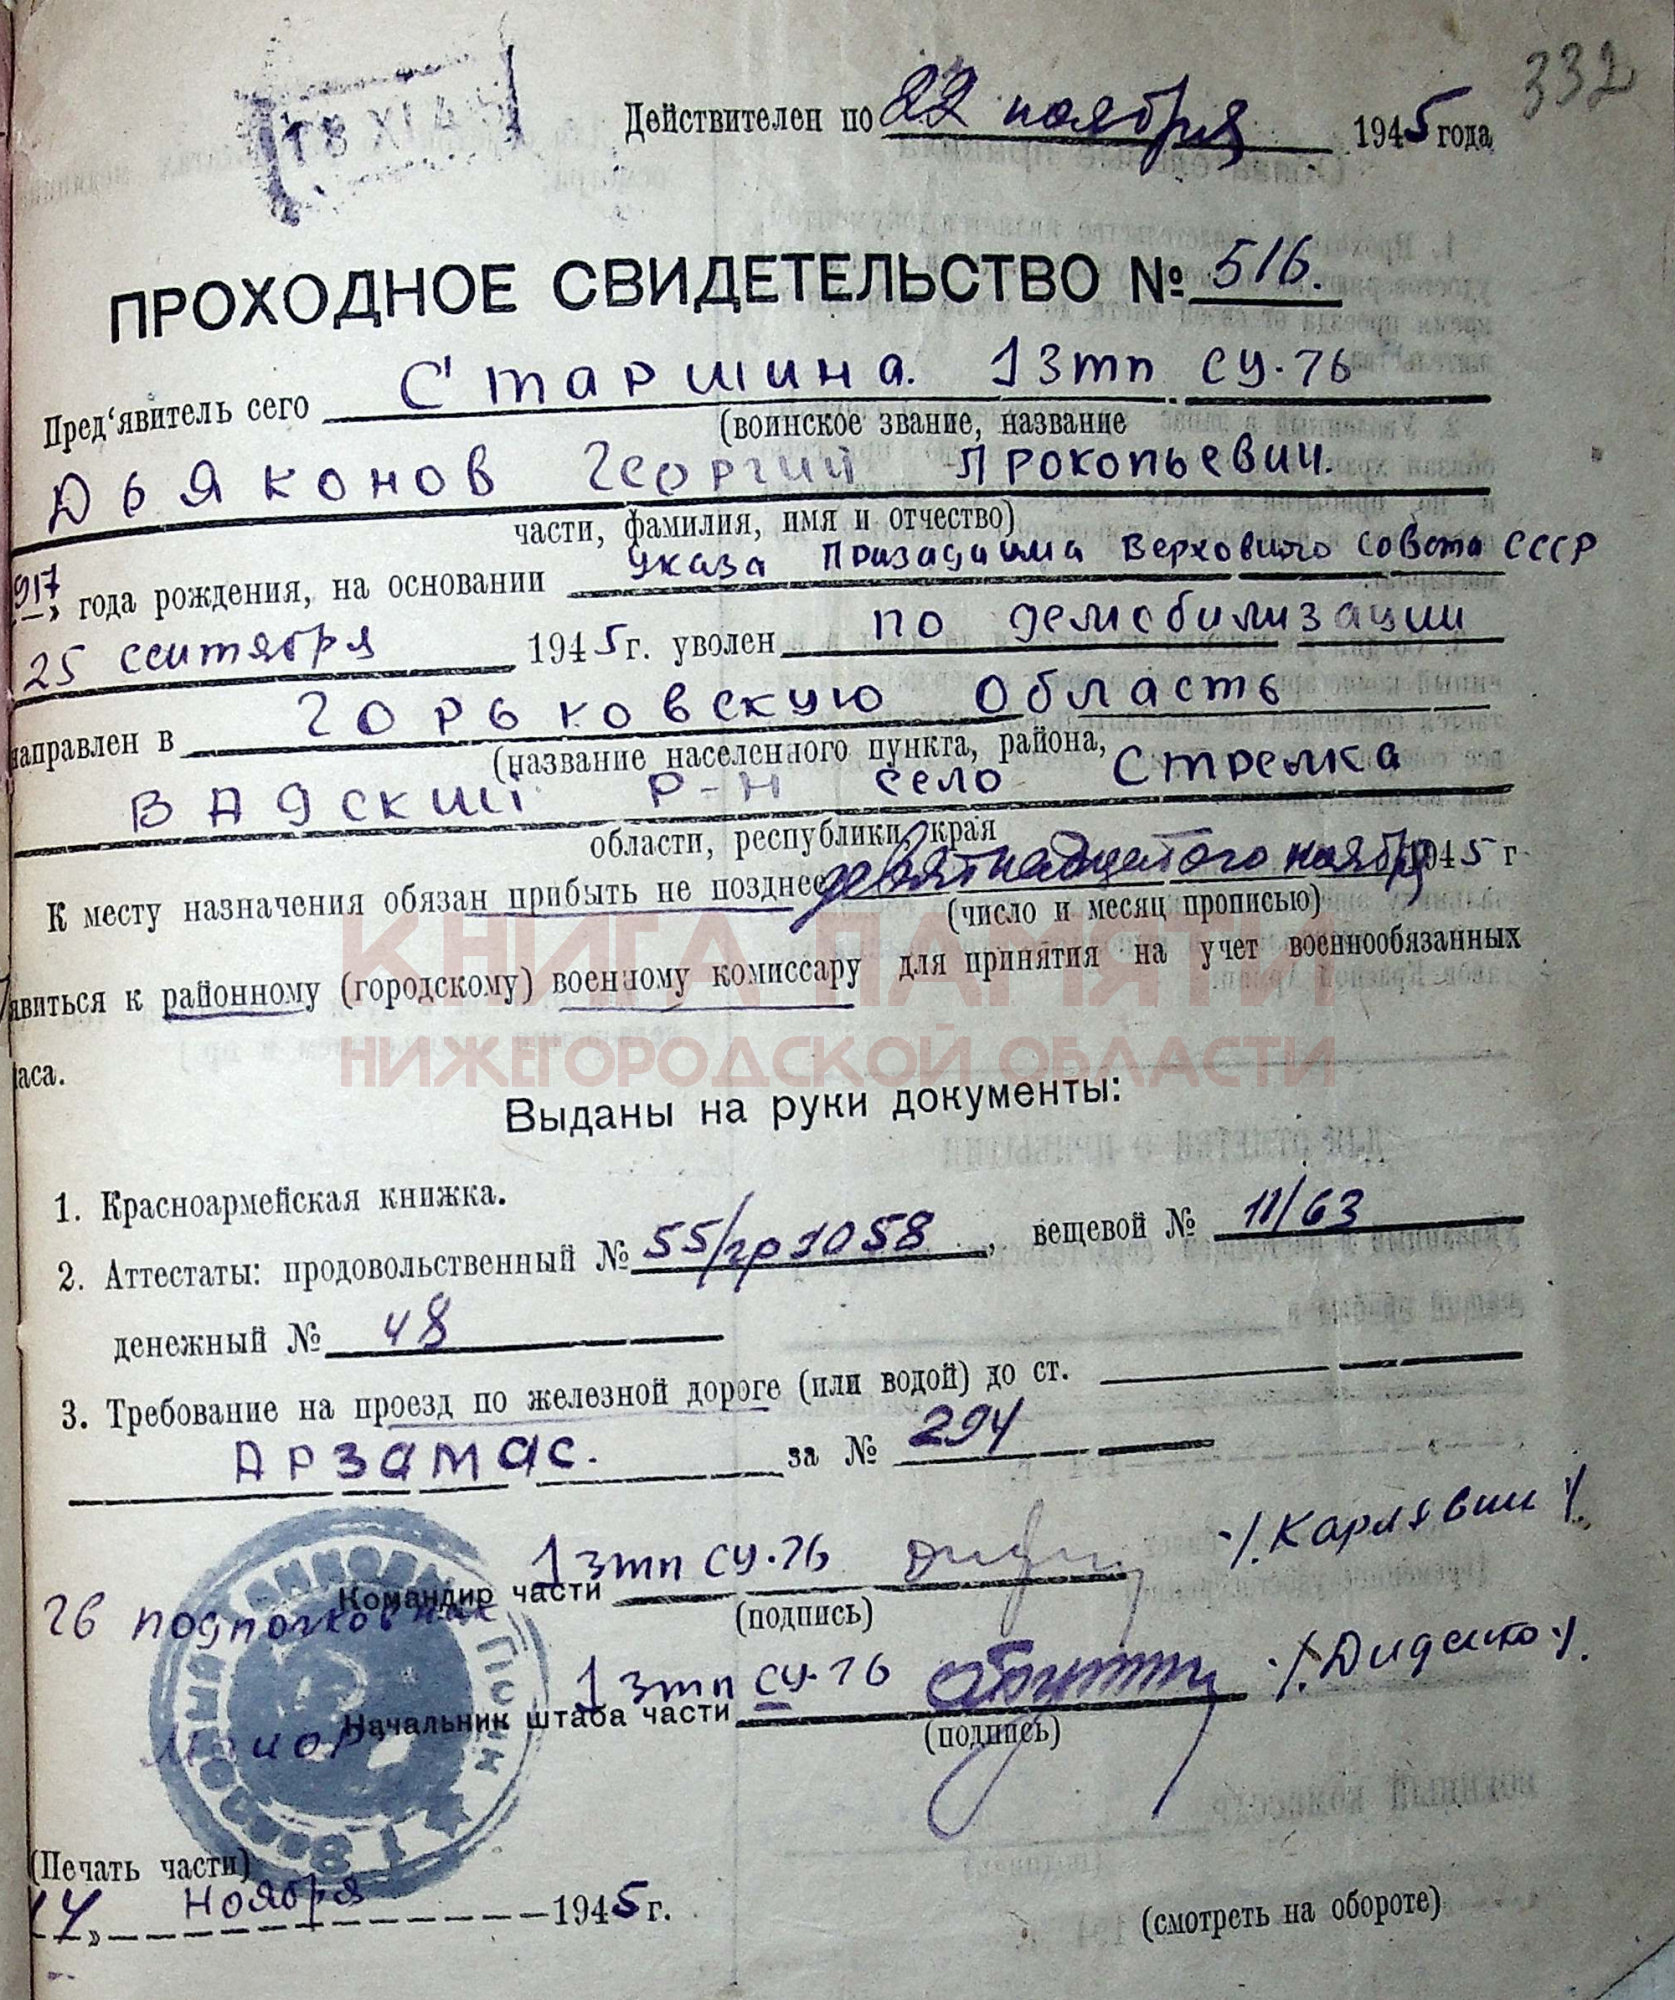 332
18 XI 45
Действителен по 22 ноября 1945 года
ПРОХОДНОЕ СВИДЕТЕЛЬСТВО № 516.
Пред‘явитель сего Старшина. 1 зтп СУ-76
(воинское звание, название
Дьяконов Георгий Прокопьевич.
части, фамилия, имя и отчество)
917 года рождения, на основании Указа Призадиима Верховного Совета СССР
25 сентября 1945 г. уволен по демобилизации
направлен в Горьковскую область
(название населенного пункта, района,
ВАДСКИЙ Р-Н село Стрелка
области, республики, края
К месту назначения обязан прибыть не позднее девятнадцатого ноября 1945 г
(число и месяц прописью)
явиться к районному (городскому) военному комиссару для принятия на учет военнообязанных
КНИГА ПАМЯТИ
НИЖЕГОРОДСКОЙ ОБЛАСТИ
аса.
Выданы на руки документы:
1. Красноармейская книжка.
2. Аттестаты: продовольственный № 55/гр 1058, вещевой № 11/63
денежный № 48
3. Требование на проезд по железной дороге (или водой) до ст.
Арзамас. за № 294
1 зтп СУ-76 /Карлявин/.
Командир части
гв подполковник (подпись)
1 зтп СУ-76 /Диденко/.
Начальник штаба части
майор (подпись)
(Печать части)
14» Ноября 1945 г.
(смотреть на обороте)